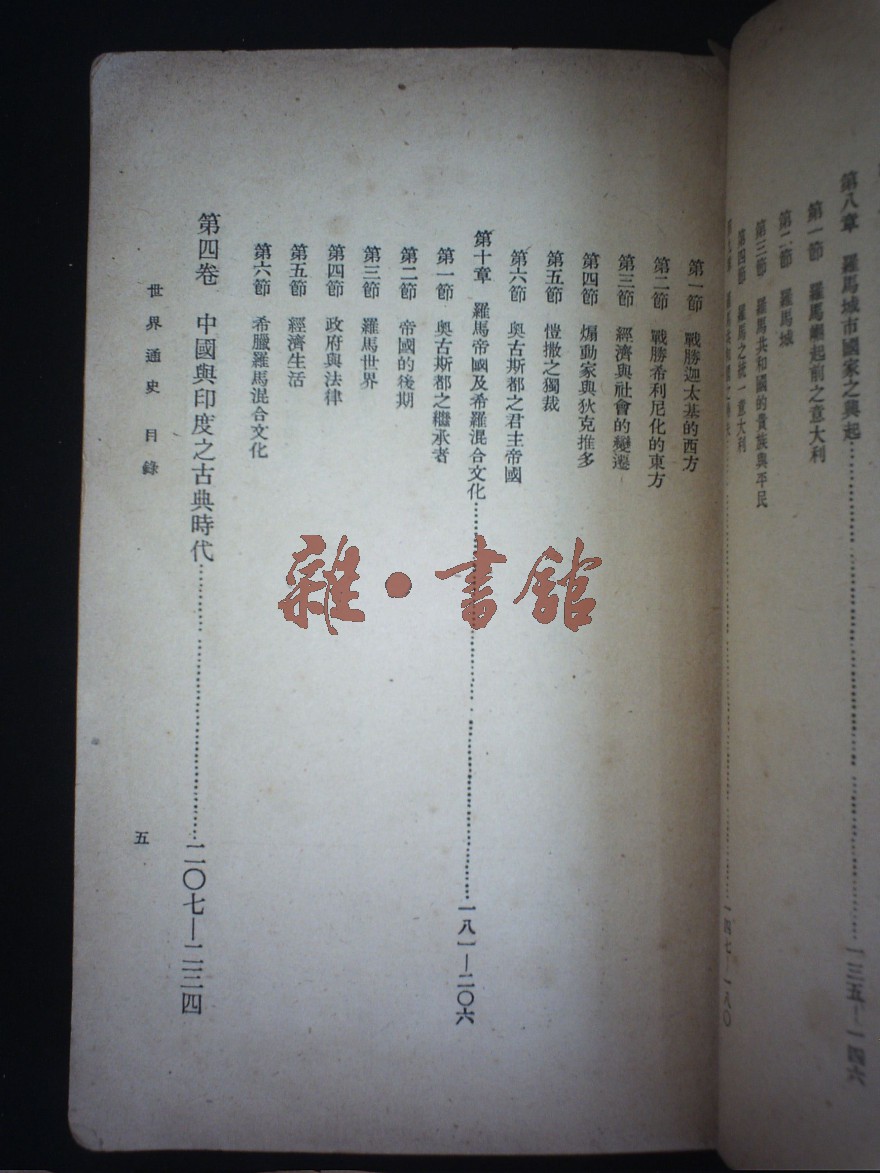 第八章 羅馬城市國家之興起……一三五—一四六
第一節 羅馬崛起前之意大利
第二節 羅馬城
第三節 羅馬共和國的貴族與平民
第四節 羅馬之統一意大利
一四七—一八〇
第一節 戰勝迦太基的西方
第二節 戰勝希利尼化的東方
第三節 經濟與社會的變遷
第四節 煽動家與狄克推多
第五節 愷撒之獨裁
第六節 奧古斯都之君主帝國
第十章 羅馬帝國及希羅混合文化……一八一—二〇六
第一節 奧古斯都之繼承者
第二節 帝國的後期
第三節 羅馬世界
第四節 政府與法律
第五節 經濟生活
第六節 希臘羅馬混合文化
第四卷 中國與印度之古典時代……二〇七—二二四
世界通史 目錄
五
雜·書館